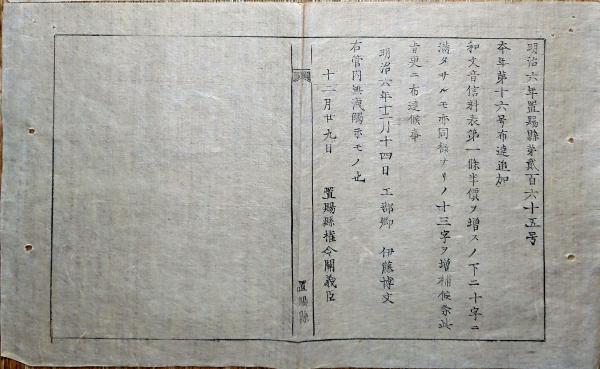 明治六年置賜縣第貳百六十五号
本年第十六号布達追加
和文音信料表第一條半價ヲ増スノ下二十字ニ
満タサルモ亦同様ナリノ十三字ヲ増補候条此
旨更ニ布達候事
明治六年十二月十四日 工部卿 伊藤博文
右管内無洩陽示モノ也
十二月廿九日 置賜縣権令関義臣
置賜縣